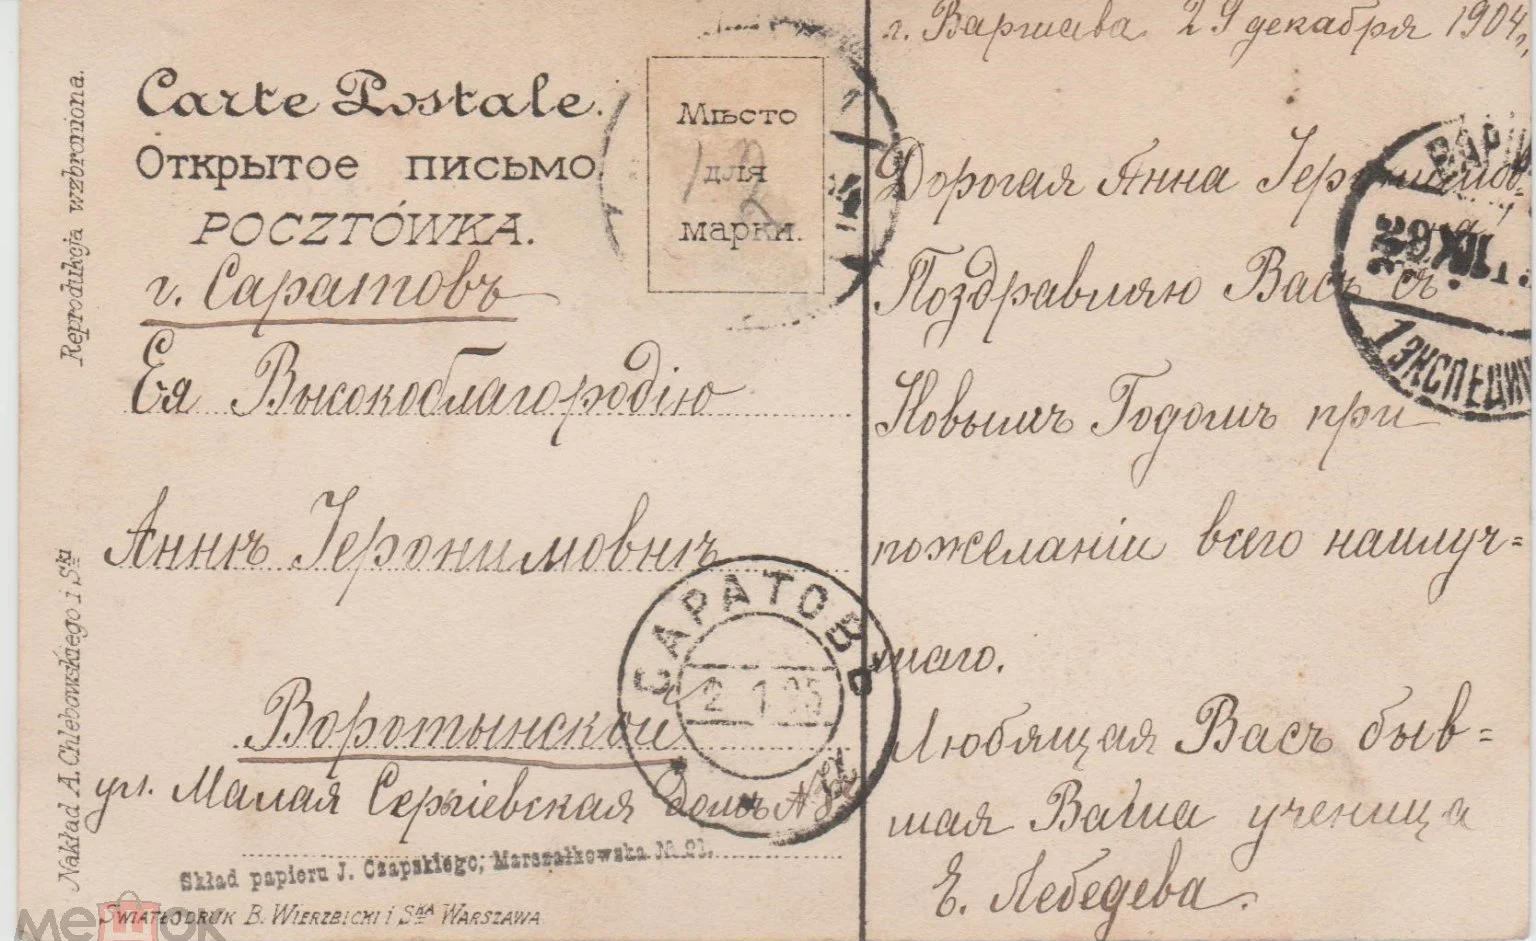 Carte Postale.
Открытое письмо
POCZTÓWKA.
Мѣсто
для
марки.
г. Саратовъ
Ея Высокоблагородію
Аннѣ Іеронимовнѣ
Воротынской
ул. Малая Сергіевская домъ №
Skład papieru J. Czapskiego, Marszałkowska №
ŚWIATŁODRUK B. WIERZBICKI i SKA WARSZAWA
Reprodukcja wzbroniona.
Nakład A. Chlebowskiego i Ski
САРАТОВЪ
2 1 05
г. Варшава 29 декабря 1904 г.
Дорогая Анна Іеронимов-
на,
Поздравляю Васъ съ
Новымъ Годомъ при
пожеланіи всего наилуч=
шаго.
Любящая Васъ быв=
шая Ваша ученица
Е. Лебедева.
ВАРШ
1 ЭКСПЕДИЦ
мешок